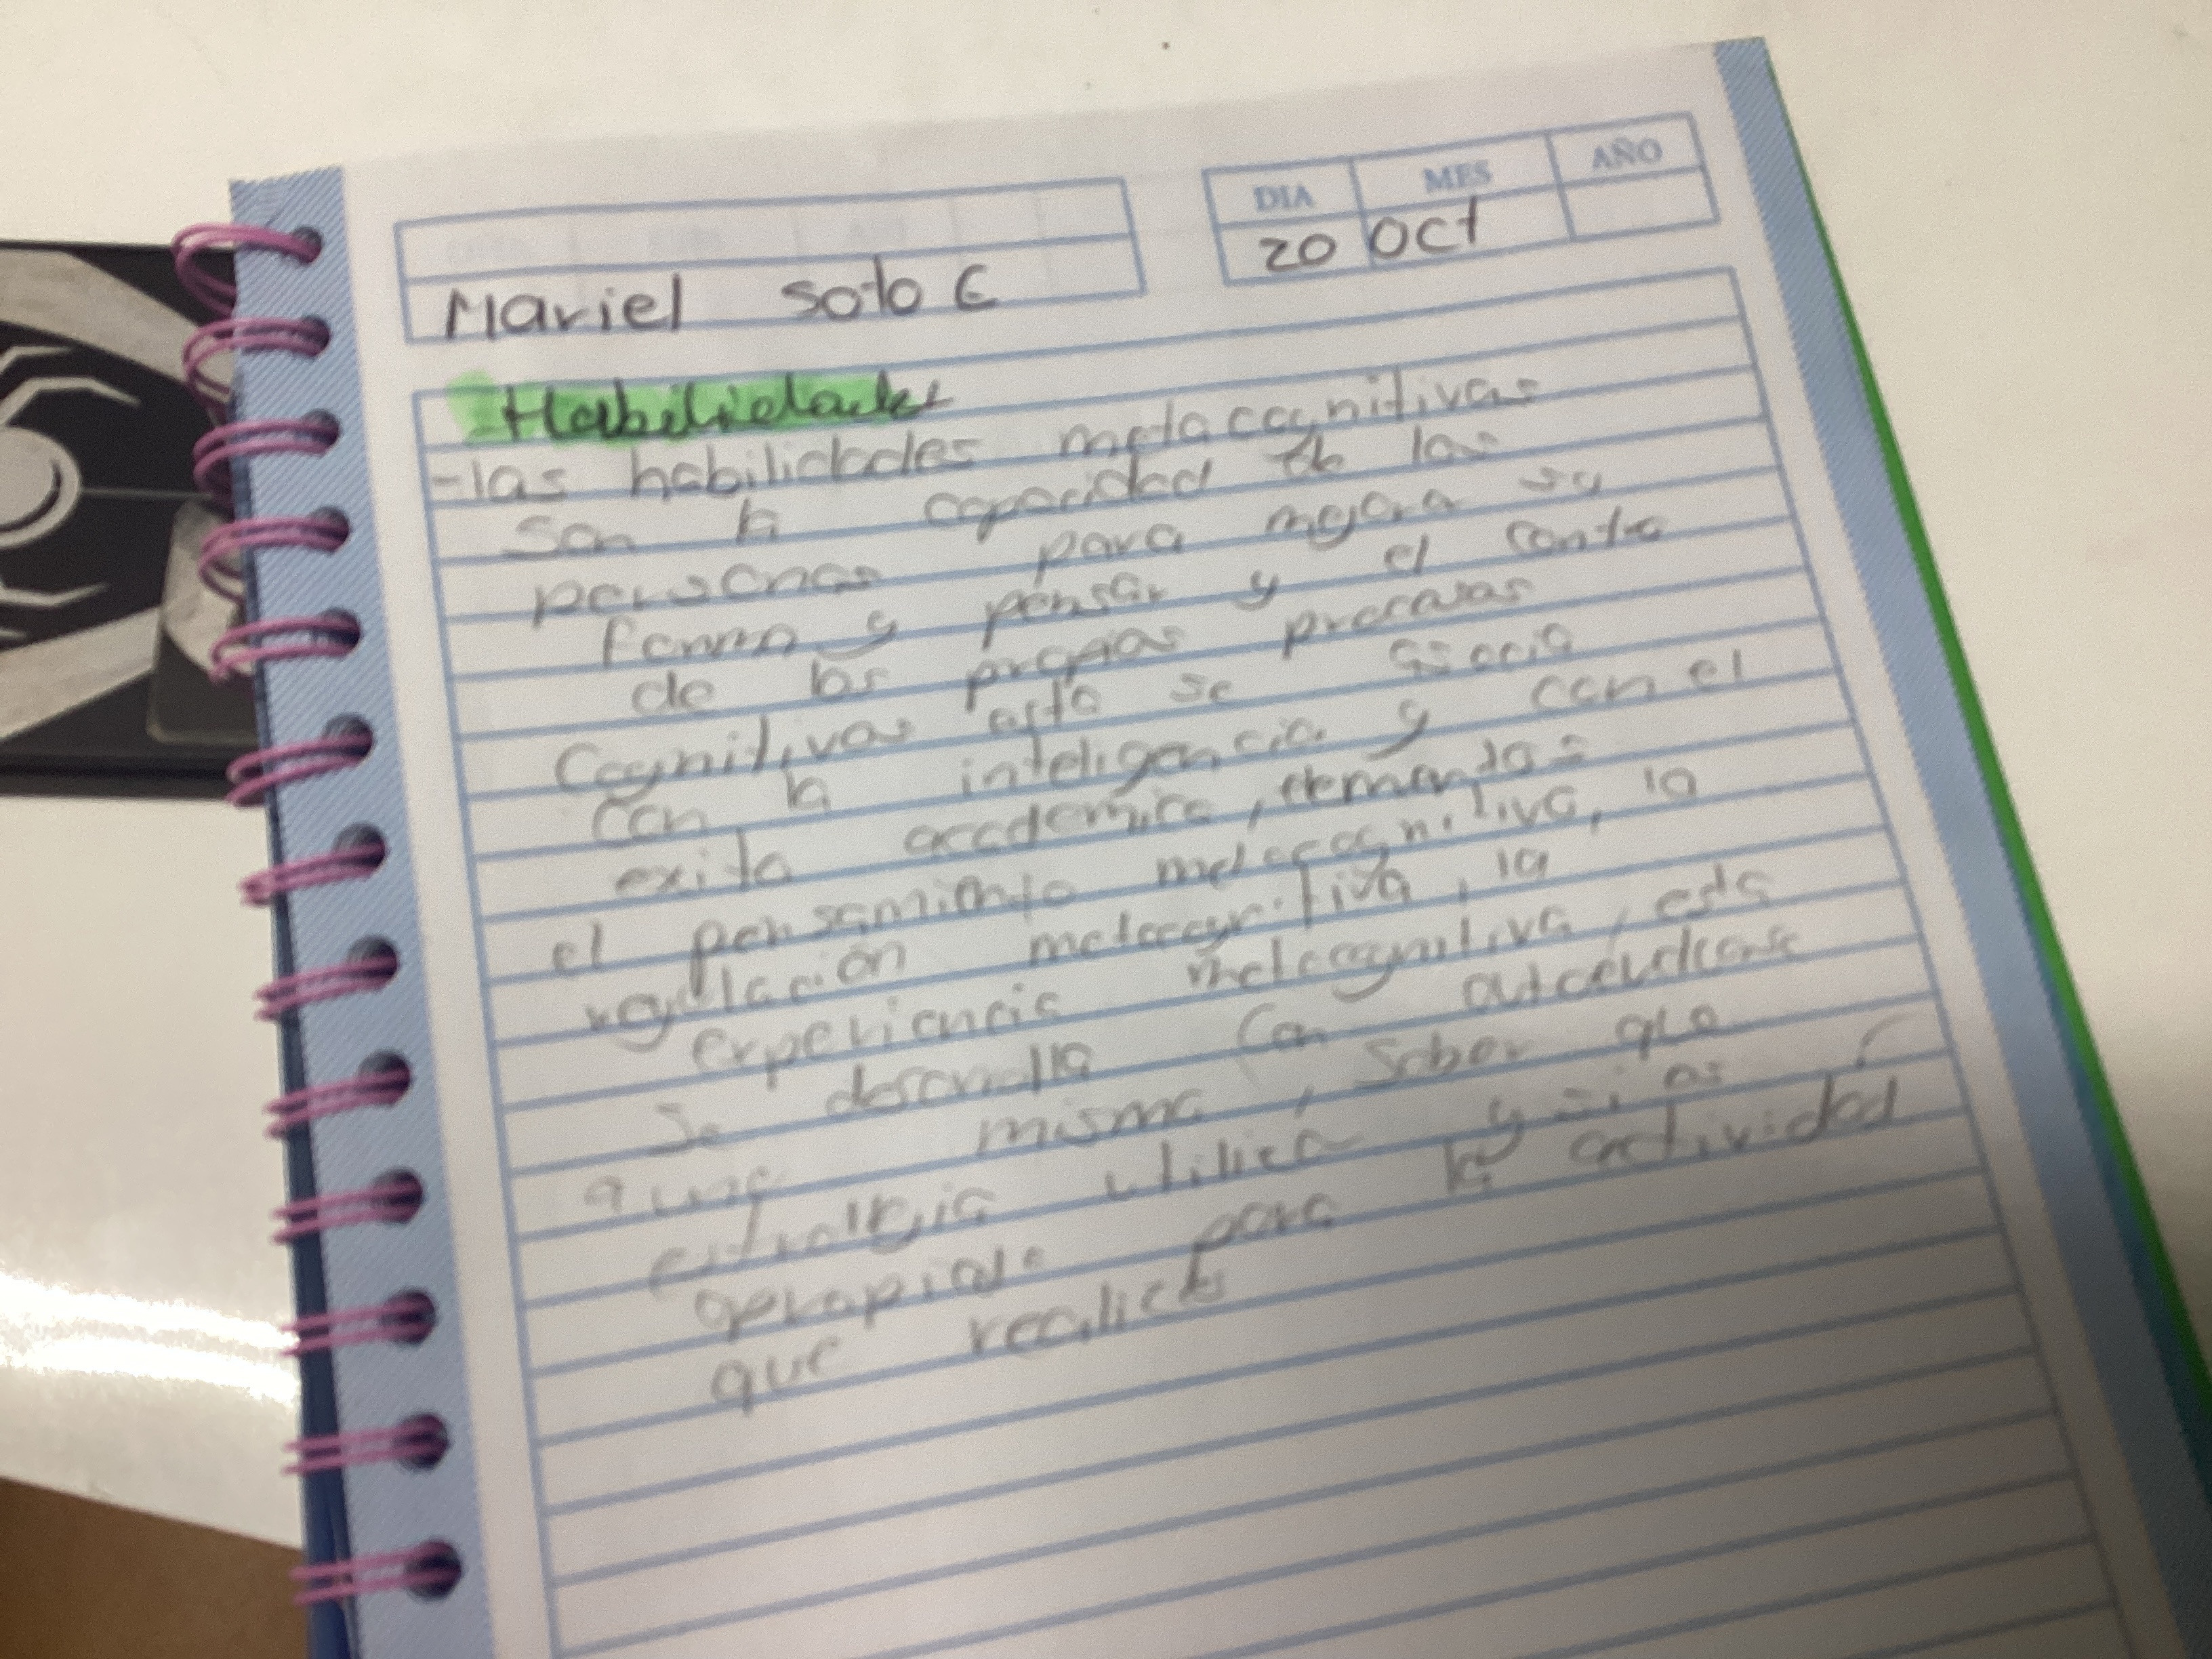 DIA MES AÑO
20 Oct
Mariel Soto E
Habilidades
-las habilidades metacognitivas
son la capacidad de las
personas para mejora su
forma y pensar y el contro
de los propios procesos
Cognitivos esto se asocia
con la inteligencia y con el
exito academico,
el pensamiento metacognitiva, la
regulación metacognitiva, la
experiencia metecognitiva, esta
se desarrolla Con
a uno mismo, Saber que
estrategia utilice y si es
para la actividad
que realick